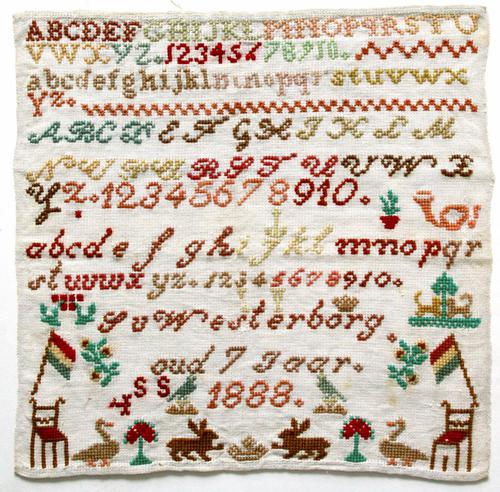 ABCDEFGHIJKLMNOPQRSTU
VWXYZ. 12345678910.
abcdefghijklmnopqrstuvwx
yz.
ABCDEFGHIJKLM
NOPQRSTUVWX
YZ. 12345678910.
abcdefghijklmnopqr
stuvwxyz. 12345678910.
S v Westerborg.
oud 7 Jaar.
SS
1888.